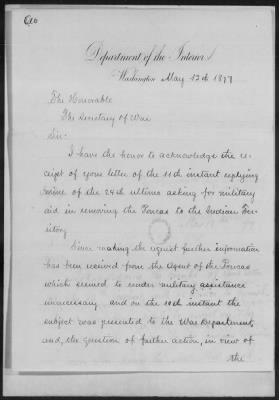 Department of the Interior
Washington May 12th 1877
The Honorable
The Secretary of War
Sir:
I have the honor to acknowledge the re-
ceipt of your letter of the 11th instant replying
mine of the 24th ultimo asking for military
aid in removing the Poncas to the Indian Ter-
ritory
Since making the request further information
has been received from the Agent of the Poncas
which seemed to render military assistance
unnecessary and on the 10th instant the
subject was presented to the War Department,
and, the question of further action, in view of
the